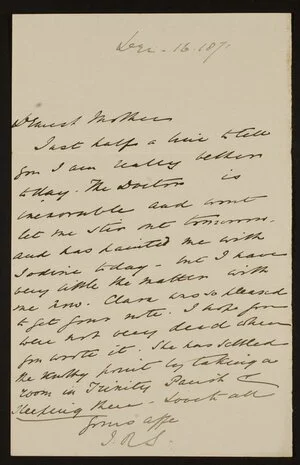 Dec. 16. 187
Dearest Mother
Just half a line to tell
you I am really better
today. The Doctor is
inexorable and wont
let me stir out tomorrow.
and has painted me with
Iodine today but I have
very little the matter with
me now. Clara was so pleased
to get your note. I hope you
were not very dead when
you wrote it. She has settled
the point by taking a
room in Trinity Parish &
sleeping there. Love to all
Yours affe
J.R.S.